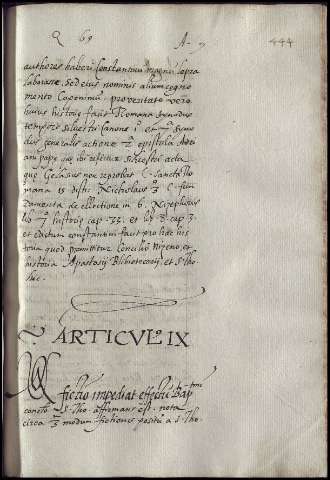 Q 69 A. 9 444
authores haberi Constantinum magnū lepra
laborasse, sed eius nominis alium cogno
mento Coponimū. pro veritate vero
huius historię facit Romana synodus
tempore silvestri Canone 1º et 7ª syno
dus generalis actione 2ª epistula Adri
ani papę que ibi refertur silvestri acta
que Gelasius non reprobat C. sancta Ro
mana 15 disti. Nicholaus 3 C. fun
damenta de ellectione in 6. Nicephorus
lib 7º historię cap. 33. et lib 8 cap 3.
et edictum constantini facit pro hac his
toria quod premittitur Concilio Niceno, et
historia Apastasij Bibliotecarij et S. Tho.
hic.
ARTICULꝰ IX
fictio impediat effectū Baptmi
concto S. Tho. affirmans est. nota
circa 3 modum fictionis positū a S. Tho.